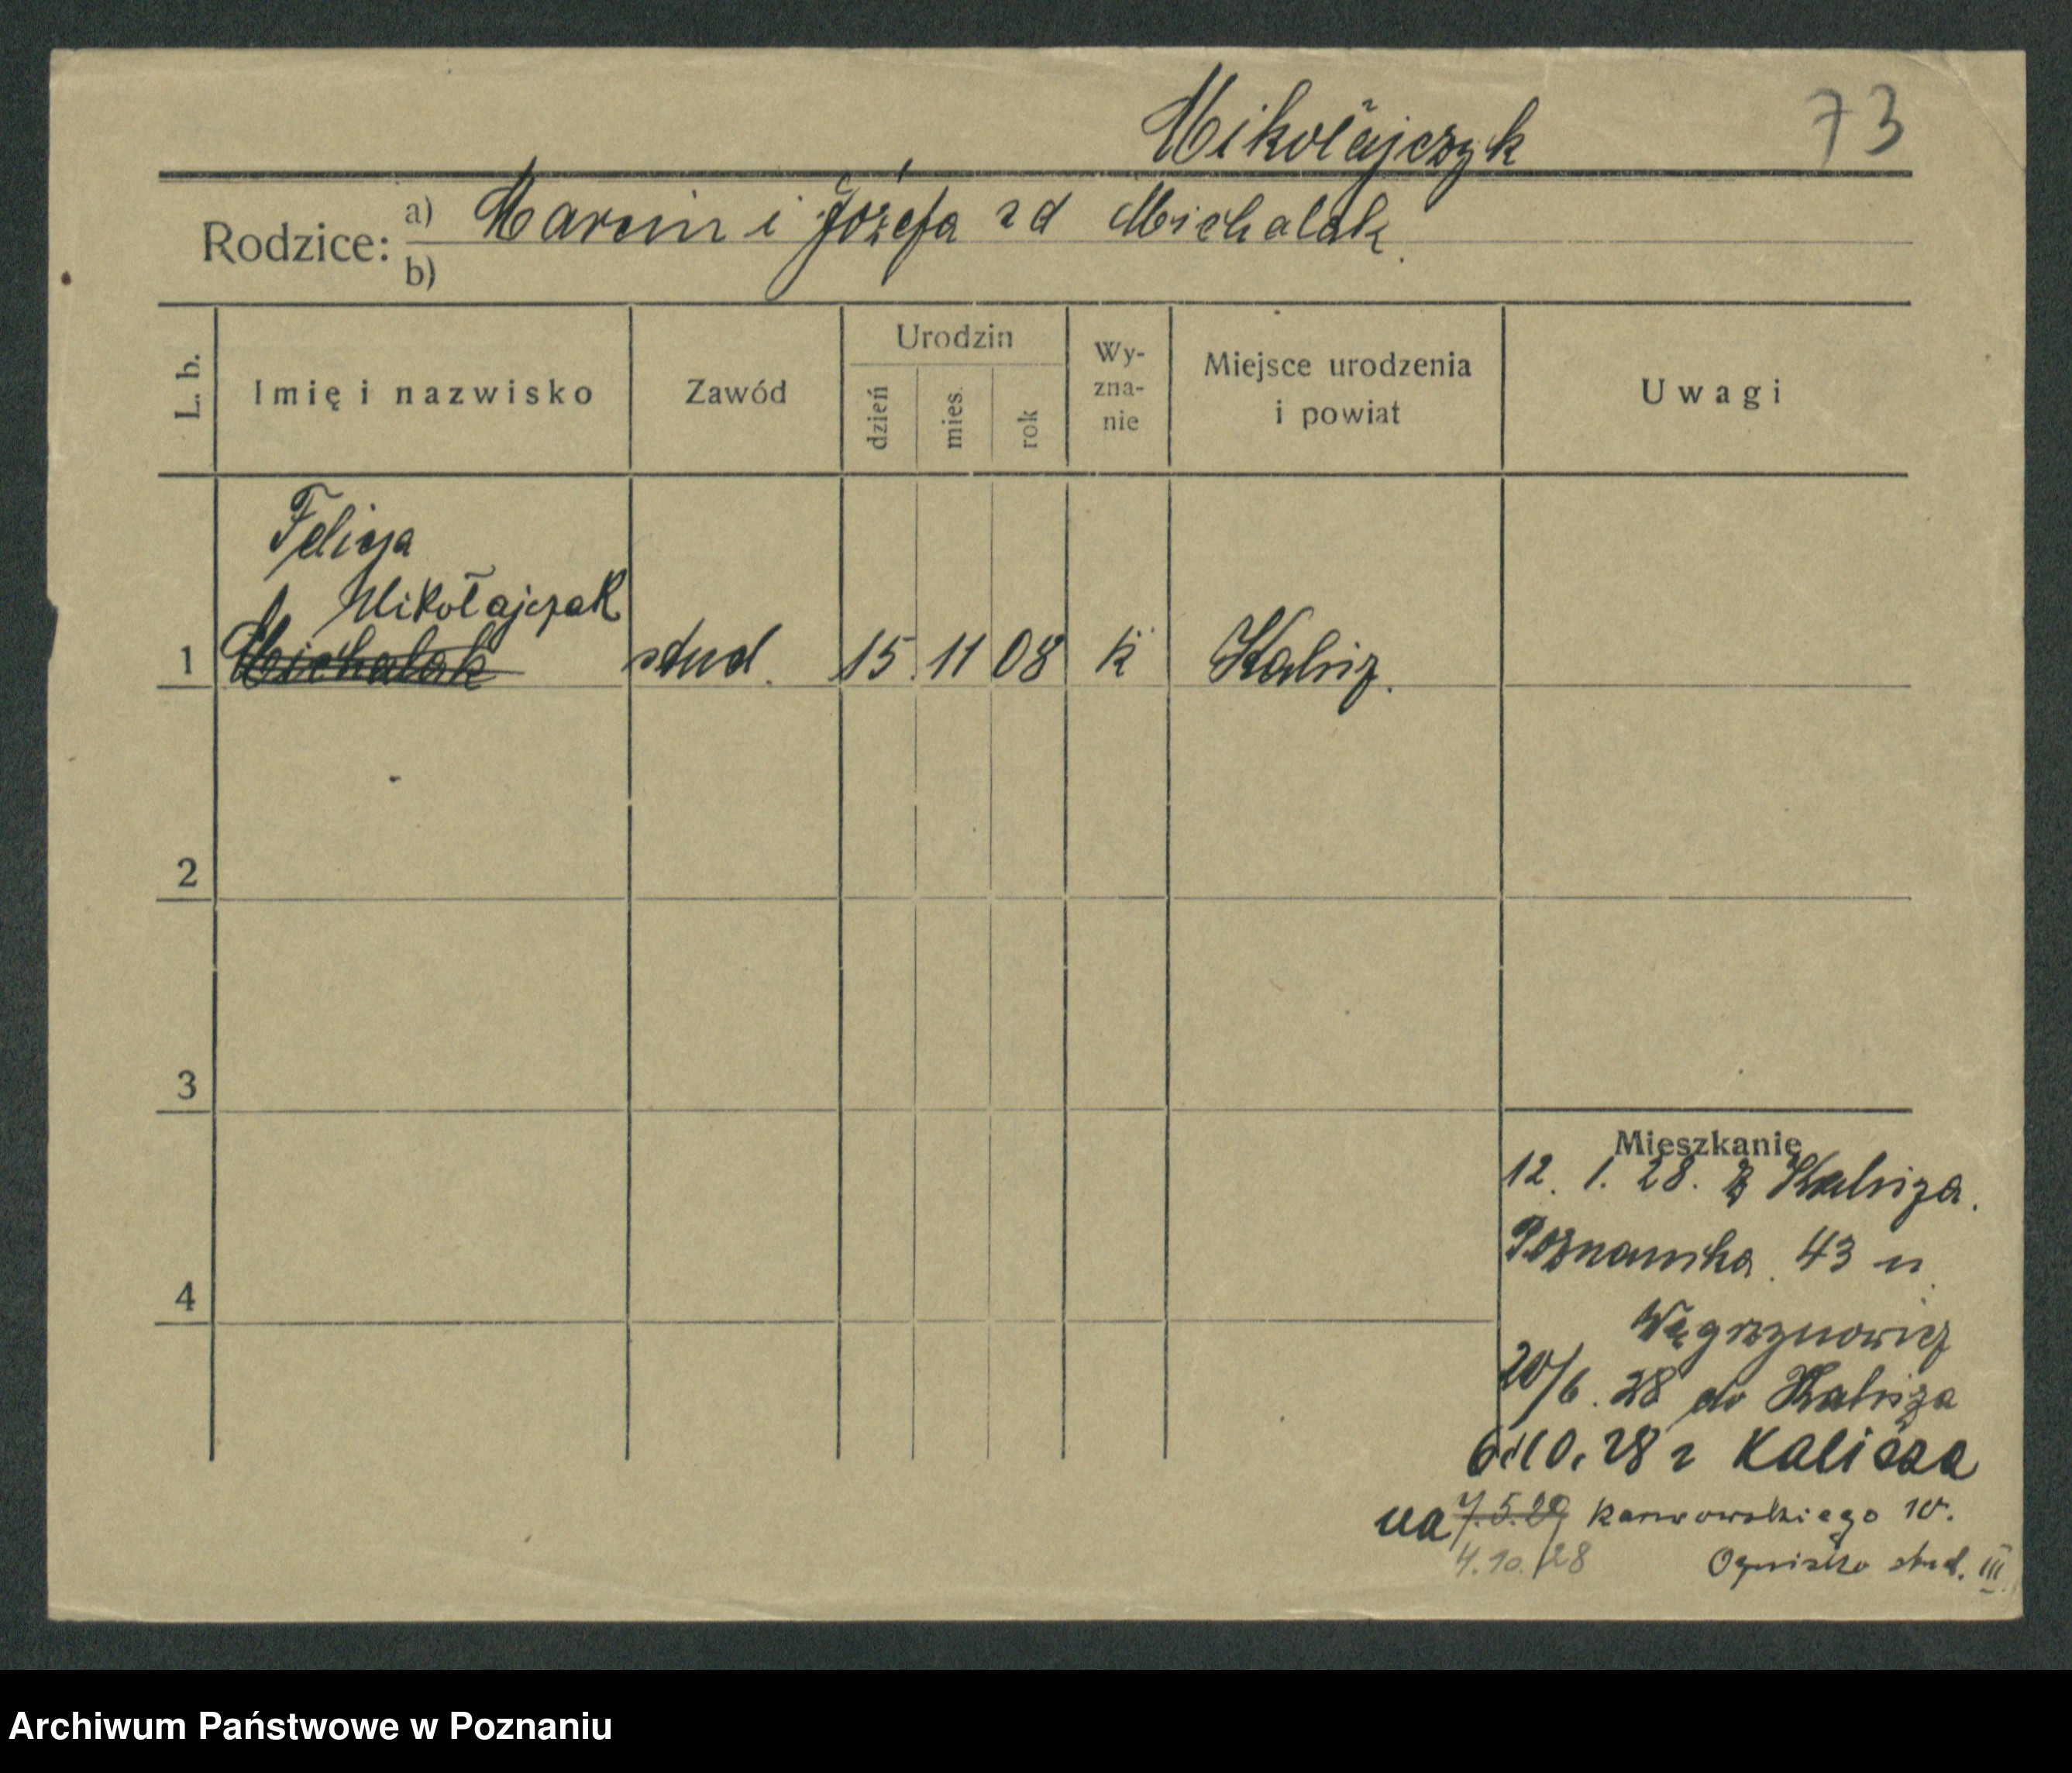 Mikołajczyk 73
Rodzice: a) Marcin i Józefa zd Michalak
b)
L. b. Imię i nazwisko Zawód Urodzin dzień mies. rok Wy-zna-nie Miejsce urodzenia i powiat Uwagi
Felicja
Mikołajczak
1 Michalak stud. 15 11 08 k Kalisz.
2
3
Mieszkanie
12. 1. 28. z Kalisza.
Poznańska 43 u
4
Węgrzynowicz
20/6. 28 do Kalisza
6.10.28 z Kalisza
na 7.5.29 Karwowskiego 10.
4.10.28 Ognisko stud. III
Archiwum Państwowe w Poznaniu